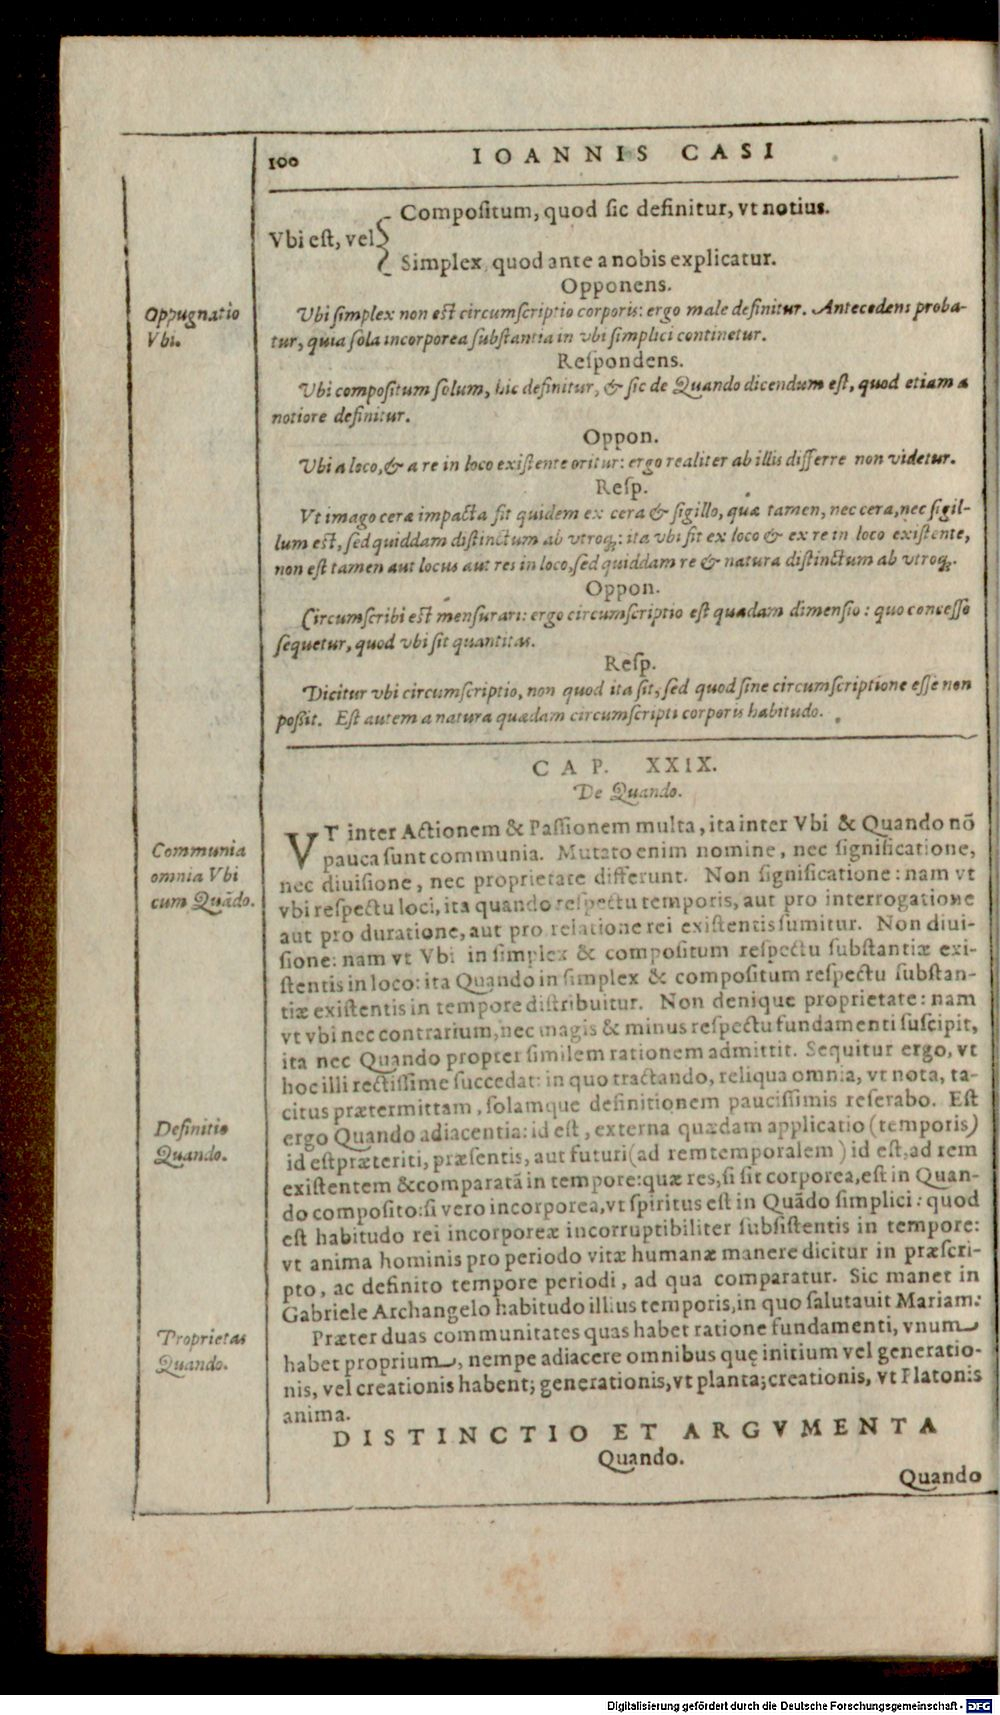 100
IOANNIS CASI
Compositum, quod sic definitur, vt notius.
Vbi est, vel
Simplex, quod ante a nobis explicatur.
Opponens.
Oppugnatio
Vbi.
Vbi simplex non est circumscriptio corporis: ergo male definitur. Antecedens proba-
tur, quia sola incorporea substantia in vbi simplici continetur.
Respondens.
Vbi compositum solum, hic definitur, & sic de Quando dicendum est, quod etiam a
notiore definitur.
Oppon.
Vbi a loco, & a re in loco existente oritur: ergo realiter ab illis differre non videtur.
Resp.
Vt imago ceræ impacta fit quidem ex cera & sigillo, quæ tamen, nec cera, nec sigil-
lum est, sed quiddam distinctum ab vtroq;: ita vbi fit ex loco & ex re in loco existente,
non est tamen aut locus aut res in loco, sed quiddam re & natura distinctum ab vtroq;.
Oppon.
Circumscribi est mensurari: ergo circumscriptio est quædam dimensio: quo concesso
sequetur, quod vbi sit quantitas.
Resp.
Dicitur vbi circumscriptio, non quod ita sit, sed quod sine circumscriptione esse non
possit. Est autem a natura quædam circumscripti corporis habitudo.
CAP. XXIX.
De Quando.
Communia
omnia Vbi
cum Quãdo.
VT inter Actionem & Passionem multa, ita inter Vbi & Quando nõ
pauca sunt communia. Mutato enim nomine, nec significatione,
nec diuisione, nec proprietate differunt. Non significatione: nam vt
vbi respectu loci, ita quando respectu temporis, aut pro interrogatione
aut pro duratione, aut pro relatione rei existentis sumitur. Non diui-
sione: nam vt Vbi in simplex & compositum respectu substantiæ exi-
stentis in loco: ita Quando in simplex & compositum respectu substan-
tiæ existentis in tempore distribuitur. Non denique proprietate: nam
vt vbi nec contrarium, nec magis & minus respectu fundamenti suscipit,
ita nec Quando propter similem rationem admittit. Sequitur ergo, vt
hoc illi rectissime succedat: in quo tractando, reliqua omnia, vt nota, ta-
citus prætermittam, solamque definitionem paucissimis referabo. Est
Definitio
Quando.
ergo Quando adiacentia: id est, externa quædam applicatio (temporis)
id est præteriti, præsentis, aut futuri (ad rem temporalem) id est, ad rem
existentem & comparatã in tempore: quæ res, si sit corporea, est in Quan-
do composito: si vero incorporea, vt spiritus est in Quãdo simplici: quod
est habitudo rei incorporeæ incorruptibiliter subsistentis in tempore:
vt anima hominis pro periodo vitæ humanæ manere dicitur in præscri-
pto, ac definito tempore periodi, ad qua comparatur. Sic manet in
Gabriele Archangelo habitudo illius temporis, in quo salutauit Mariam.
Proprietas
Quando.
Præter duas communitates quas habet ratione fundamenti, vnum
habet proprium, nempe adiacere omnibus quę initium vel generatio-
nis, vel creationis habent; generationis, vt planta; creationis, vt Platonis
anima.
DISTINCTIO ET ARGVMENTA
Quando.
Quando
Digitalisierung gefördert durch die Deutsche Forschungsgemeinschaft - DFG